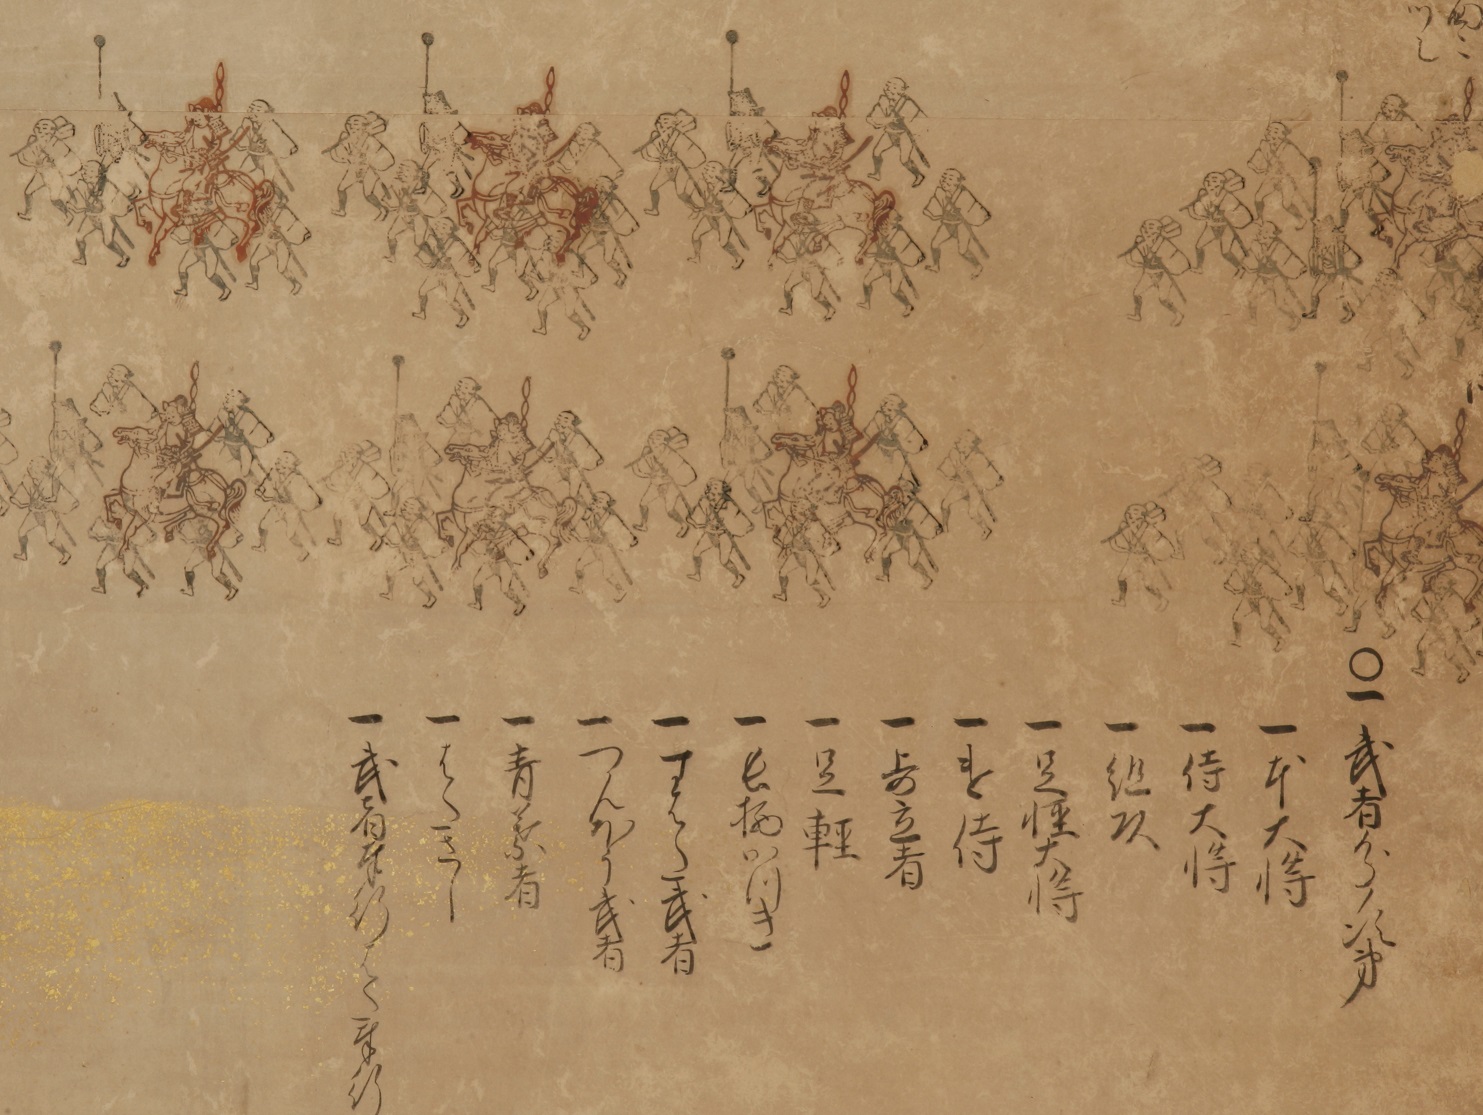 〇一 武者分ノ次第
一 本大将
一 侍大将
一 組頭
一 足軽大将
一 侍
一 歩立者
一 足軽
一 長柄
一 武者
一 武者
一 青葉者
一 はたさし
一 武者奉行はた奉行